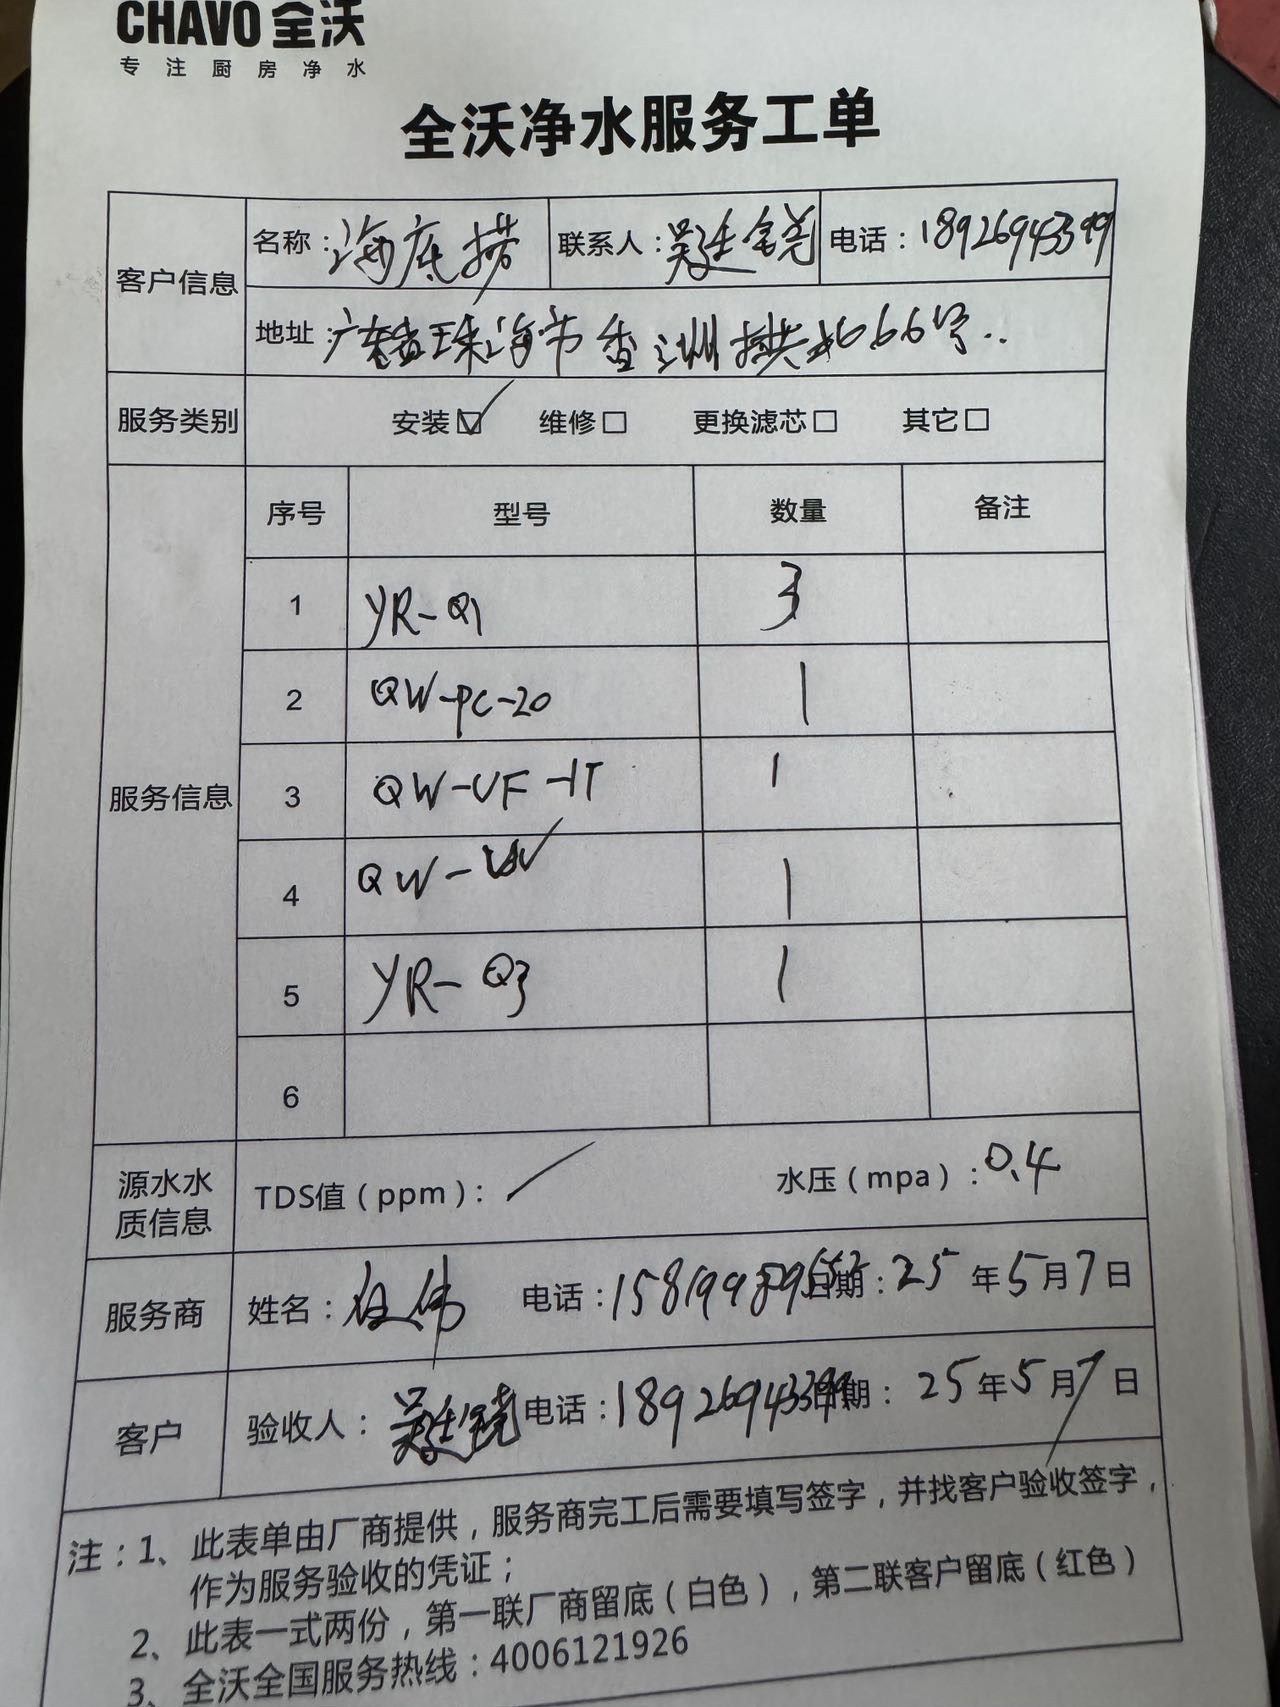 CHAVO 全沃
专注厨房净水
全沃净水服务工单
客户信息
名称：海底捞 联系人： 电话：18926943399
地址：广东省珠海市香洲拱北666号..
服务类别 安装☑ 维修□ 更换滤芯□ 其它□
服务信息
序号 型号 数量 备注
1 YR-Q1 3
2 QW-PC-20 1
3 QW-UF-1T 1
4 QW- 1
5 YR-Q3 1
6
源水水质信息 TDS值（ppm）：/ 水压（mpa）：0.4
服务商 姓名：伟 电话： 日期：25年5月7日
客户 验收人： 电话：18926943399 日期：25年5月7日
注：1、此表单由厂商提供，服务商完工后需要填写签字，并找客户验收签字，
作为服务验收的凭证；
2、此表一式两份，第一联厂商留底（白色），第二联客户留底（红色）
3、全沃全国服务热线：4006121926